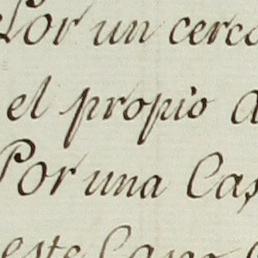 Por un cerco
el propio
Por una Cas
este